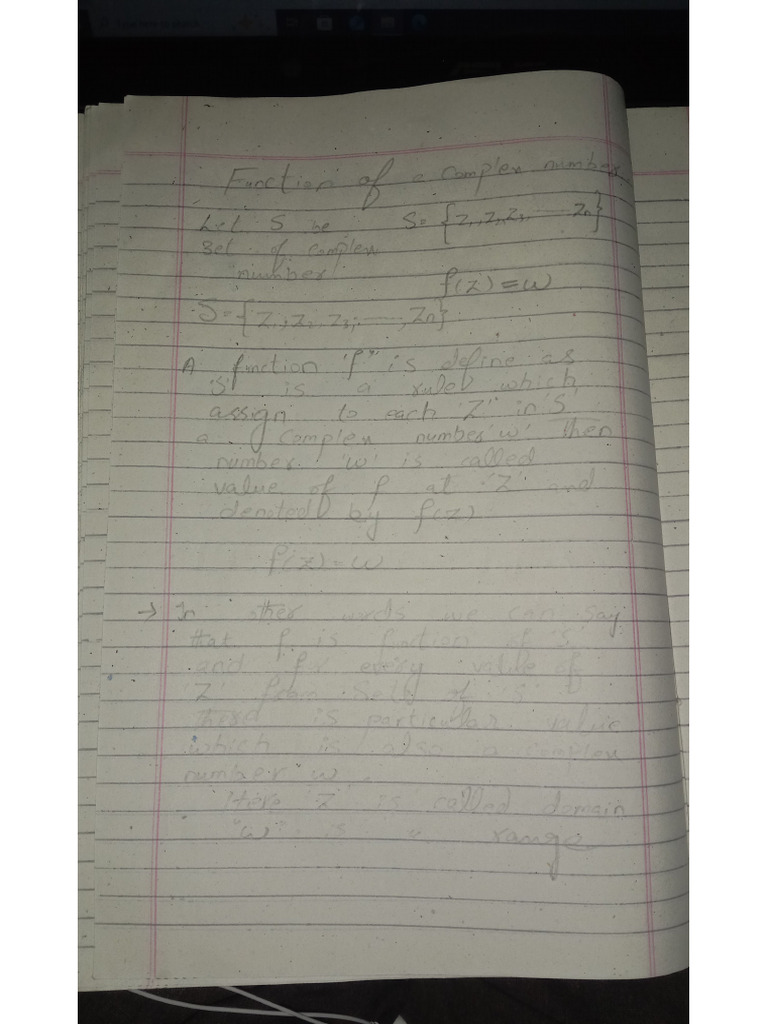 Function of a complex number
Let S be S= {Z1, Z2, Z3, ------ Zn}
set of complex
number f(z) = w
S= {Z1, Z2, Z3, ------, Zn}
A function 'f' is define as
'S' is a rule which
assign to each 'Z' in 'S'
a complex number 'w' then
number 'w' is called
value of f at 'Z' and
denoted by f(z)
f(z) = w
→ In other words we can say
that f is function of 'S'
and for every value of
'Z' from sets of 'S'
there is particular value
which is also a complex
number w.
Here 'Z' is called domain
"w" is " range